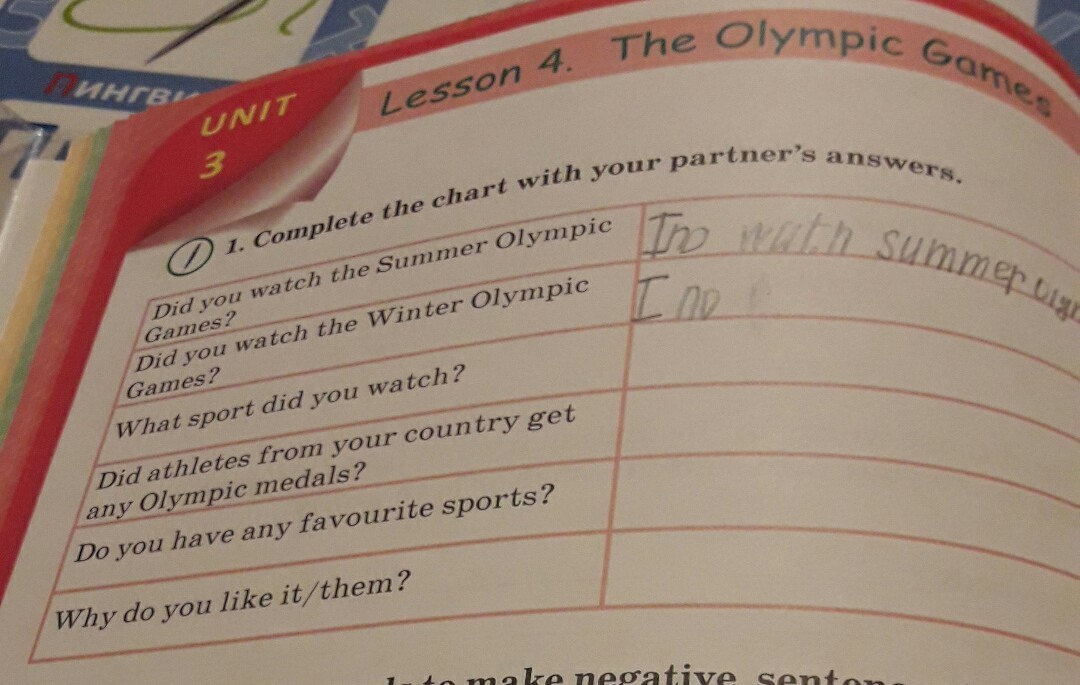 ПИНГВИ
UNIT
3
Lesson 4. The Olympic Games
1 1. Complete the chart with your partner's answers.
Did you watch the Summer Olympic
Games?
I no watch summer
Did you watch the Winter Olympic
Games?
I no
What sport did you watch?
Did athletes from your country get
any Olympic medals?
Do you have any favourite sports?
Why do you like it/them?
to make negative sentenc